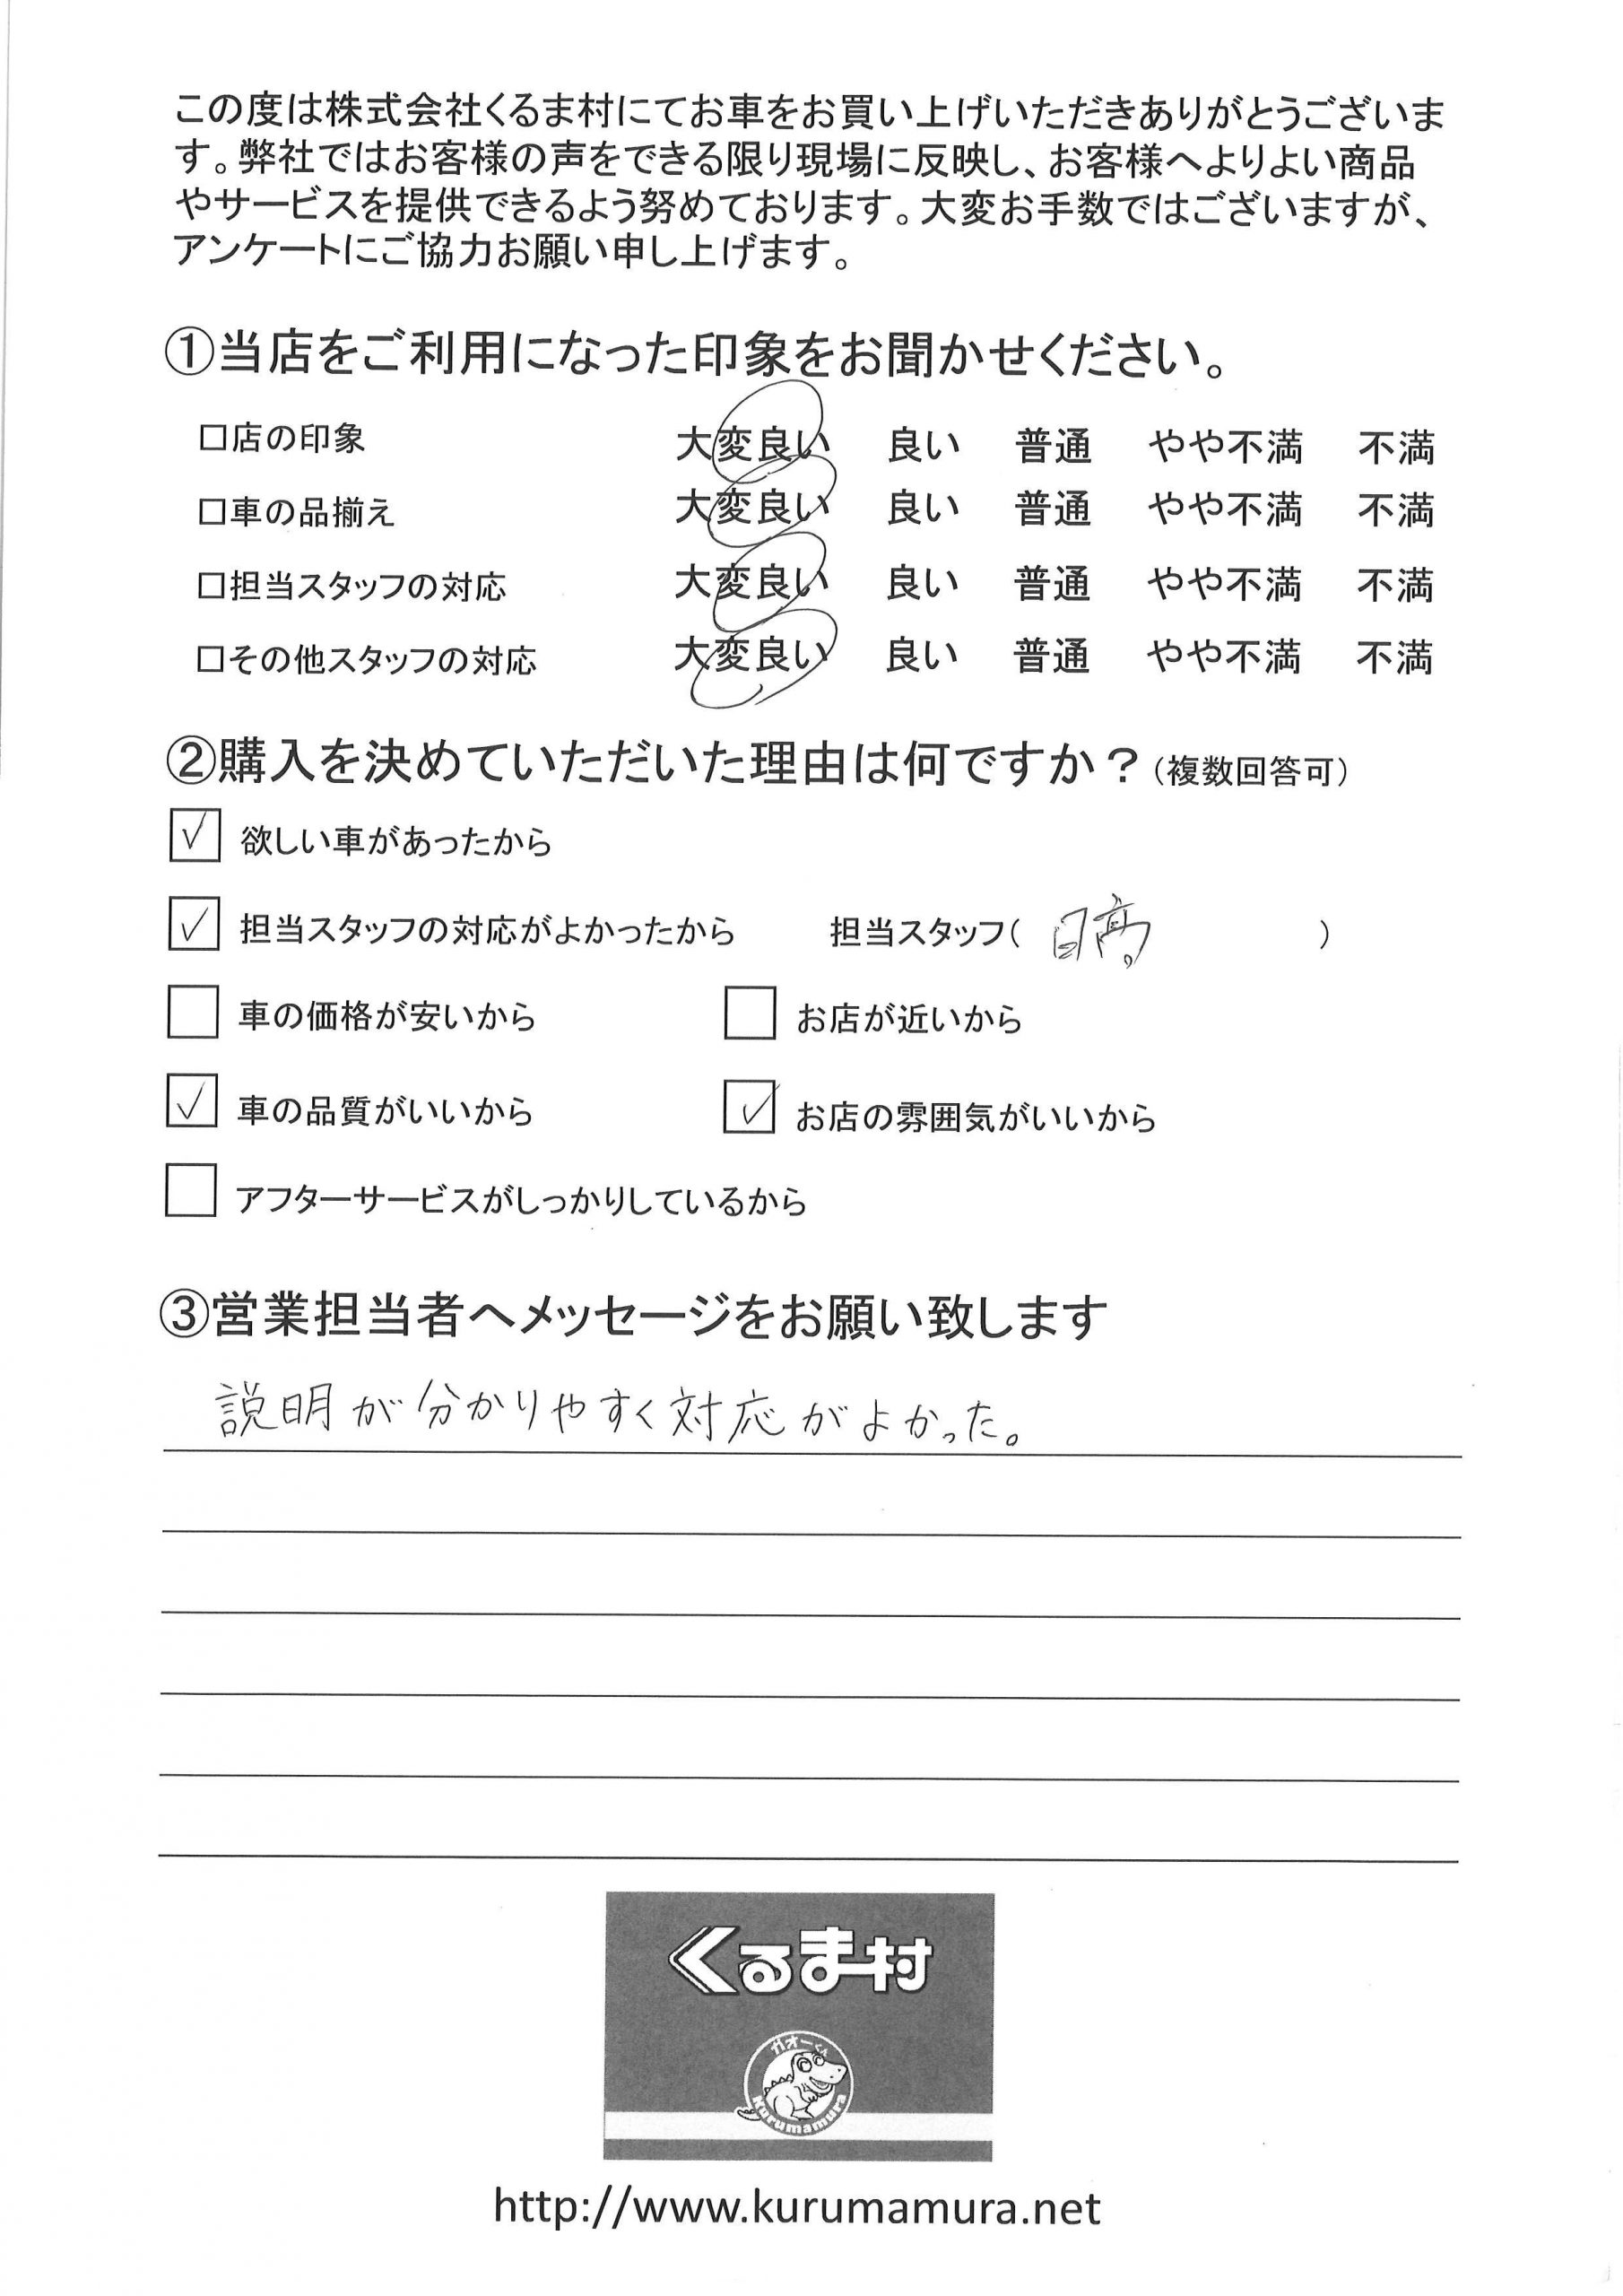 この度は株式会社くるま村にてお車をお買い上げいただきありがとうございま
す。弊社ではお客様の声をできる限り現場に反映し、お客様へよりよい商品
やサービスを提供できるよう努めております。大変お手数ではございますが、
アンケートにご協力お願い申し上げます。
①当店をご利用になった印象をお聞かせください。
□店の印象 大変良い 良い 普通 やや不満 不満
□車の品揃え 大変良い 良い 普通 やや不満 不満
□担当スタッフの対応 大変良い 良い 普通 やや不満 不満
□その他スタッフの対応 大変良い 良い 普通 やや不満 不満
②購入を決めていただいた理由は何ですか？（複数回答可）
☑ 欲しい車があったから
☑ 担当スタッフの対応がよかったから 担当スタッフ（ 日高 ）
□ 車の価格が安いから □ お店が近いから
☑ 車の品質がいいから ☑ お店の雰囲気がいいから
□ アフターサービスがしっかりしているから
③営業担当者へメッセージをお願い致します
説明が分かりやすく対応がよかった。
くるま村
ガオーくん
Kurumamura
http://www.kurumamura.net